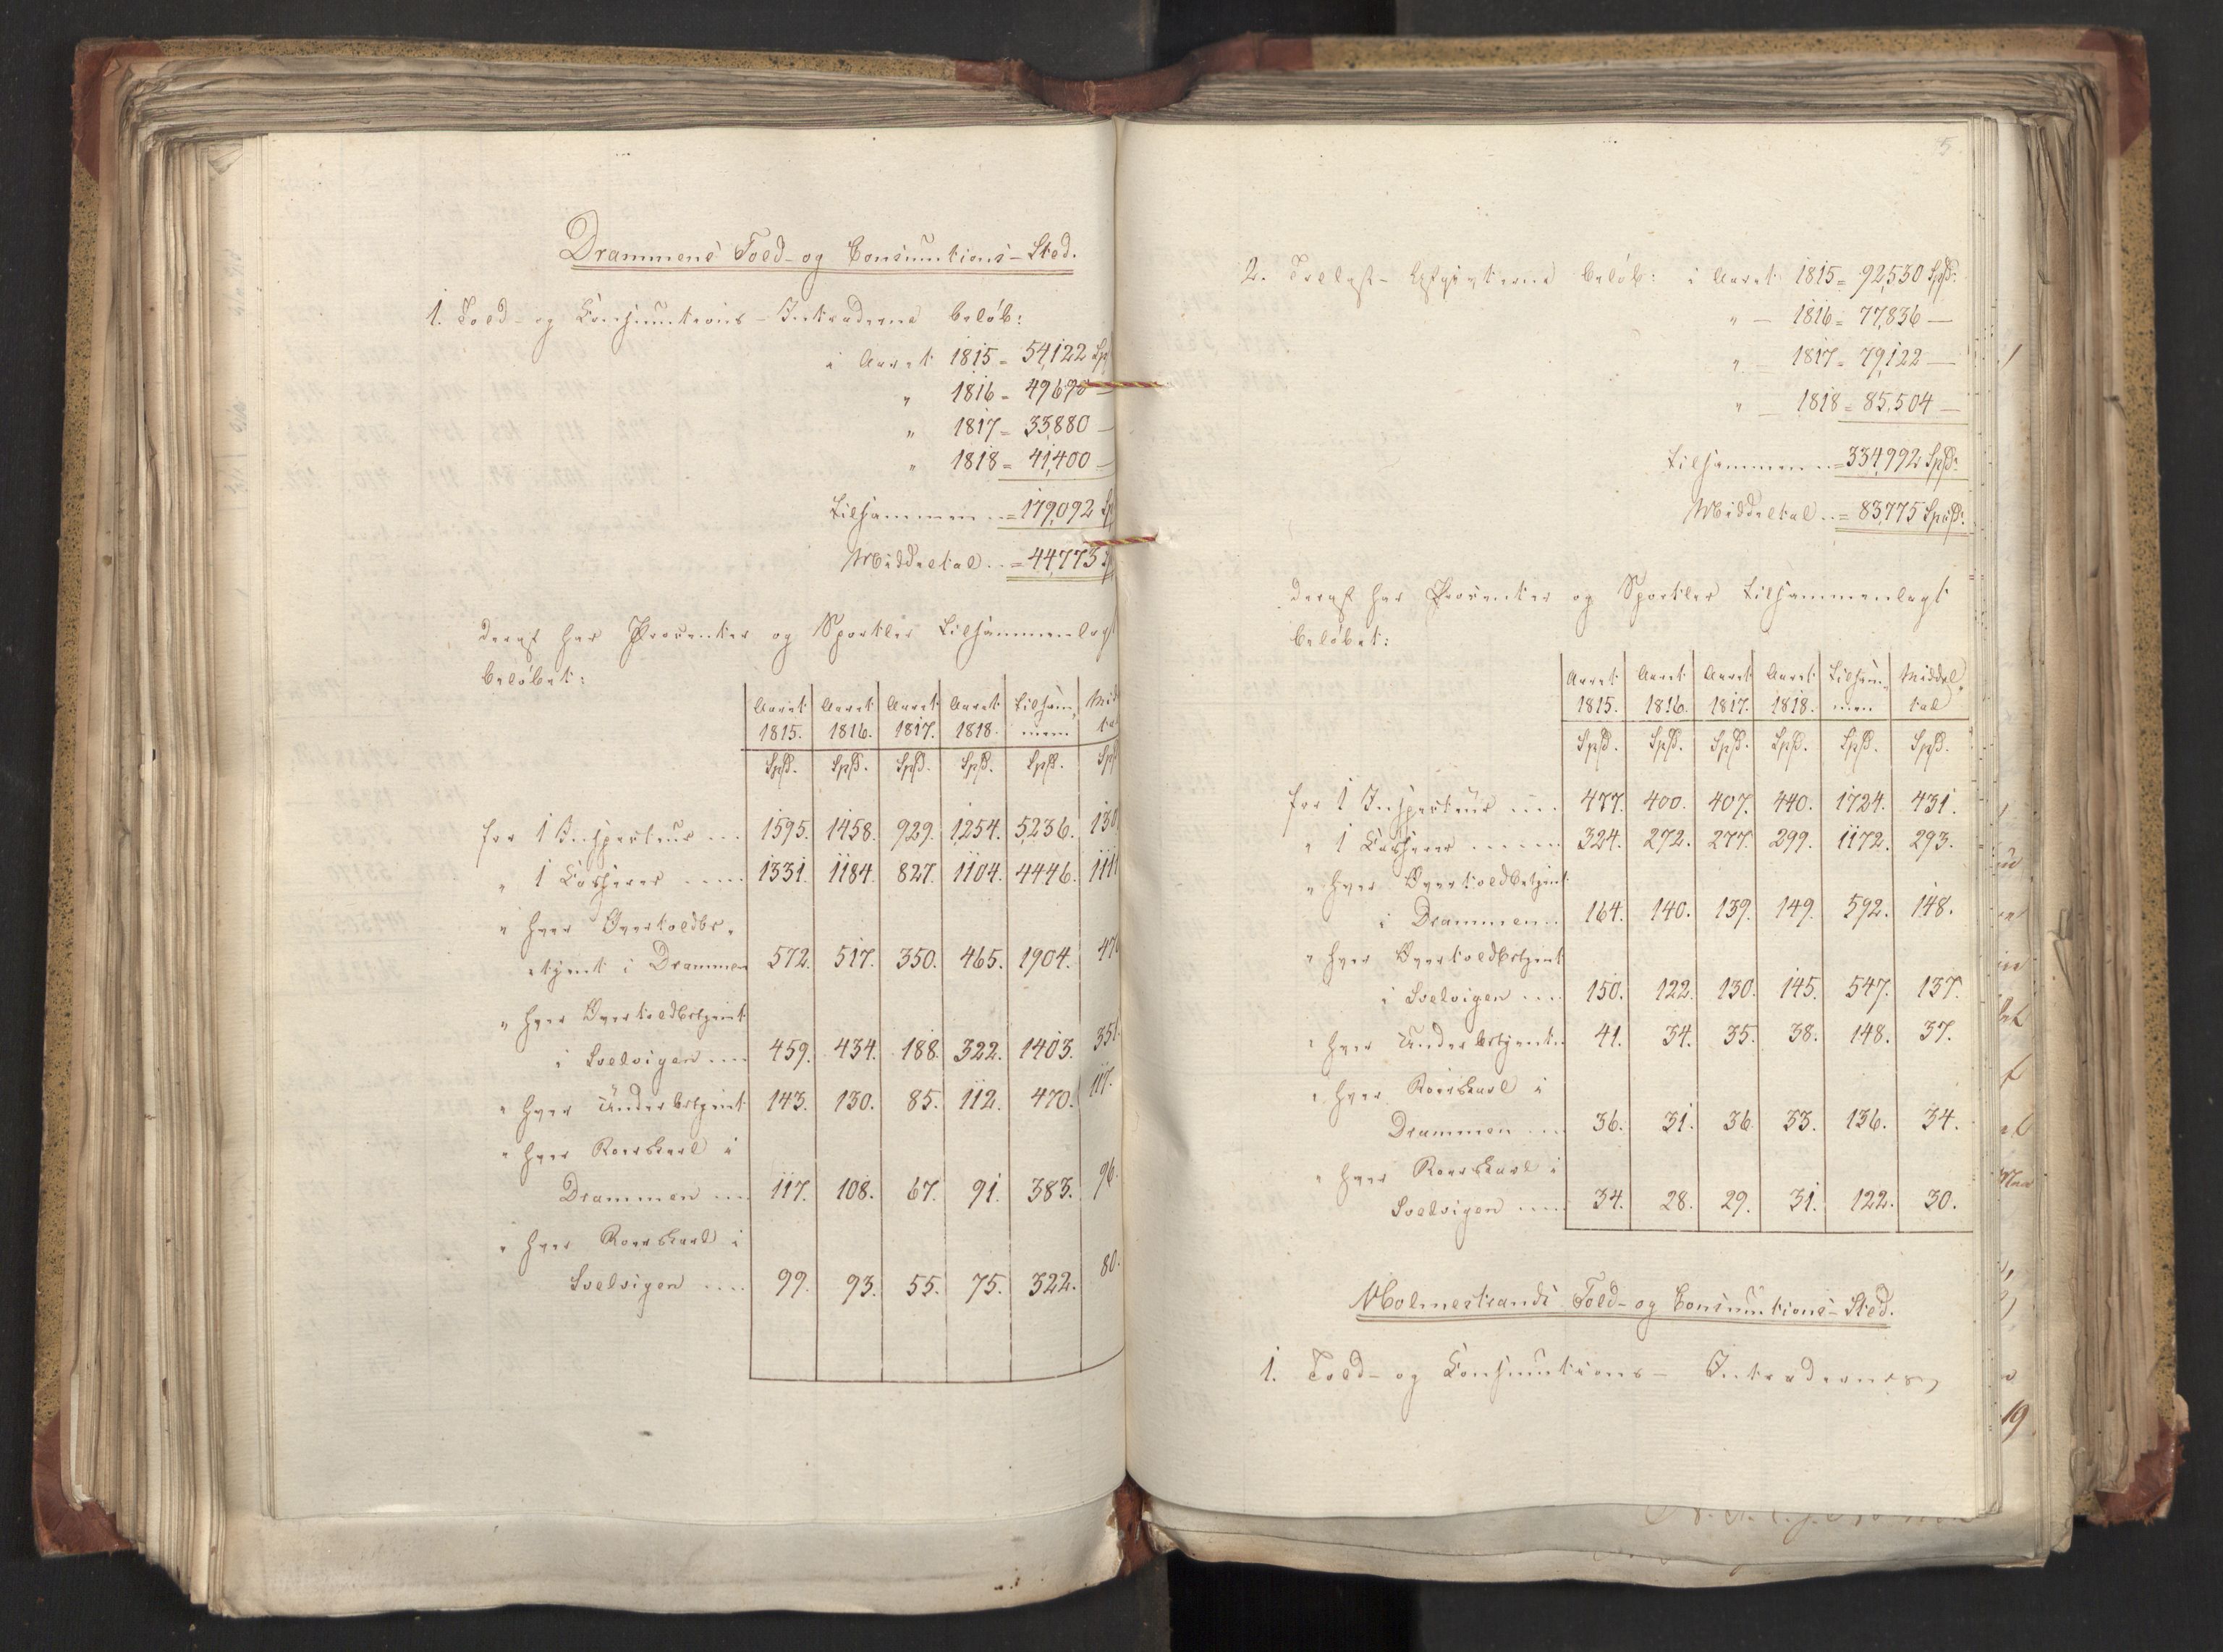 Drammens Told- og Consumtions-Sted.
1. Told- og Consumtions-Intraderne beløb:
i Aaret 1815 = 54,122 Sp
" 1816 = 49,690 —
" 1817 = 33,880 —
" 1818 = 41,400 —
tilsammen .. = 179,092 Sp
Middeltal .. = 44,773 Sp
deraf har Procenter og Sportler tilsammenlagt
beløbet:
Aaret Aaret Aaret Aaret tilsam- Mid
1815. 1816. 1817. 1818. men ta
Spd. Spd. Spd. Spd. Spd. Sp
for 1 Inspecteur ... 1595. 1458. 929. 1,254. 5,236. 130
" 1 Casserer ..... 1331. 1184. 827. 1104. 4446. 111
" hver Overtoldbe-
tjent i Drammen 572. 517. 350. 465. 1904. 476
" hver Overtoldbetjent
i Svelvigen .... 459. 434. 188. 322. 1403. 351.
" hver Underbetjent 143. 130. 85. 112. 470. 117.
" hver Roerskarl i
Drammen .... 117. 108. 67. 91. 383. 96.
" hver Roerskarl i
Svelvigen .... 99. 93. 55. 75. 322. 80.
5
2. Trælast-Afgivterne beløb: i Aaret 1815 = 92,530 Spd:
" — 1816 = 77,836 —
" — 1817 = 79,122 —
" — 1818 = 85,504 —
tilsammen .. = 334,992 Spd:
Middeltal .. = 83,775 Spd:
deraf har Procenter og Sportler tilsammenlagt
beløbet:
Aaret Aaret Aaret Aaret tilsam- Middel-
1815. 1816. 1817. 1818. men tal
Spd. Spd. Spd. Spd. Spd. Spd.
for 1 Inspecteur .... 477. 400. 407. 440. 1724. 431.
" 1 Casserer ...... 324. 272. 277. 299. 1172. 293.
" hver Overtoldbetjent
i Drammen .. 164. 140. 139. 149. 592. 148.
" hver Overtoldbetjent
i Svelvigen .... 150. 122. 130. 145. 547. 137.
" hver Underbetjent .. 41. 34. 35. 38. 148. 37.
" hver Roerskarl i
Drammen .... 36. 31. 36. 33. 136. 34.
" hver Roerskarl i
Svelvigen ..... 34. 28. 29. 31. 122. 30.
Holmestrands Told- og Consumtions-Sted.
1. Told- og Consumtions- Intraderne